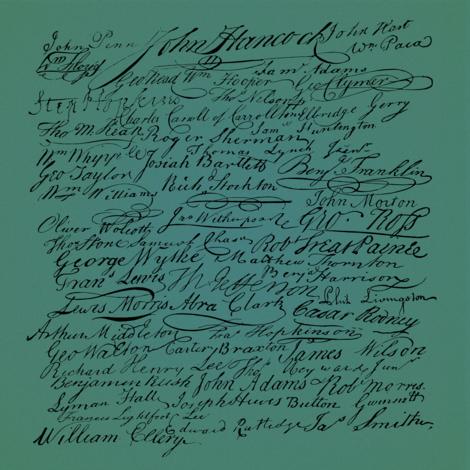 John Penn John Hancock John Hart
Wm Paca
Geo Read Wm Hooper Saml Adams
Geo Clymer
Step Hopkins Thos Nelson jr
Charles Carroll of Carrollton Elbridge Gerry
Tho M. Kean Roger Sherman Saml Huntington
Wm Whipple Thomas Lynch Junr
Geo Taylor Josiah Bartlett Benj Franklin
Wm Williams Richd Stockton John Morton
Oliver Wolcott Jno Witherspoon Geo Ross
Tho Stone Samuel Chase Robt Treat Paine
George Wythe Matthew Thornton
Frans Lewis Th Jefferson Benj Harrison
Lewis Morris Abra Clark Phil Livingston
Casar Rodney
Arthur Middleton Fras Hopkinson
Geo Walton Carter Braxton James Wilson
Richard Henry Lee Thos Heyward Junr
Benjamin Rush John Adams Robt Morris
Lyman Hall Joseph Hewes Button Gwinnett
Francis Lightfoot Lee
William Ellery Edward Rutledge Jas Smith